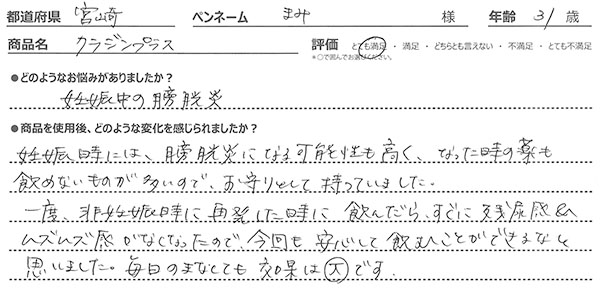 都道府県 宮崎 ペンネーム まみ 様 年齢 31 歳
商品名 クラジンプラス 評価 とても満足 ・ 満足 ・ どちらとも言えない ・ 不満足 ・ とても不満足
*○で囲んでお選びください。
●どのようなお悩みがありましたか？
妊娠中の膀胱炎
●商品を使用後、どのような変化を感じられましたか？
妊娠時には、膀胱炎になる可能性も高く、なった時の薬も
飲めないものが多いので、お守りとして持っていました。
一度、非妊娠時に再発した時に飲んだら、すぐに残尿感&
ムズムズ感がなくなったので、今回も安心して飲むことができるなと
思いました。毎日のまなくても効果は大です。